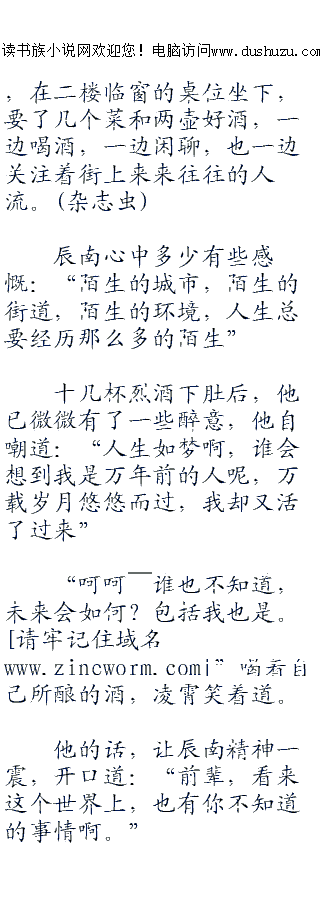 读书族小说网欢迎您！电脑访问www.dushuzu.com
，在二楼临窗的桌位坐下，
要了几个菜和两壶好酒，一
边喝酒，一边闲聊，也一边
关注着街上来来往往的人
流。(杂志虫)
辰南心中多少有些感
慨：“陌生的城市，陌生的
街道，陌生的环境，人生总
要经历那么多的陌生”
十几杯烈酒下肚后，他
已微微有了一些醉意，他自
嘲道：“人生如梦啊，谁会
想到我是万年前的人呢，万
载岁月悠悠而过，我却又活
了过来”
“呵呵——谁也不知道，
未来会如何？包括我也是。
[请牢记住域名
www.zincworm.com|”喝着自
己所酿的酒，凌霄笑着道。
他的话，让辰南精神一
震，开口道：“前辈，看来
这个世界上，也有你不知道
的事情啊。”